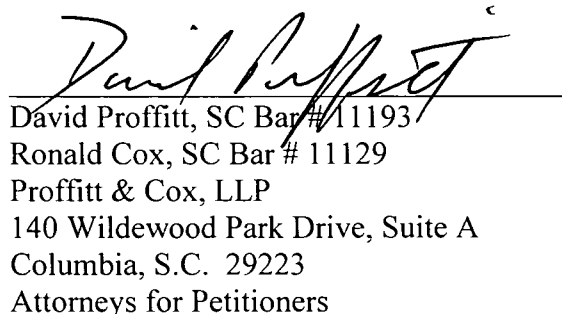 David Proffitt
David Proffitt, SC Bar # 11193
Ronald Cox, SC Bar # 11129
Proffitt & Cox, LLP
140 Wildewood Park Drive, Suite A
Columbia, S.C. 29223
Attorneys for Petitioners